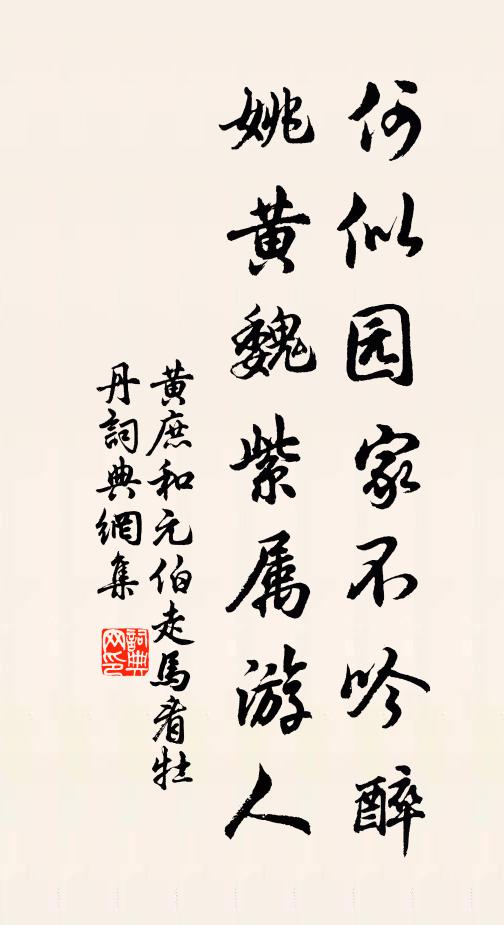 何似园家不吟醉
姚黄魏紫属游人
黄庶和元伯走馬看牡
丹詞典網集
詞典网印